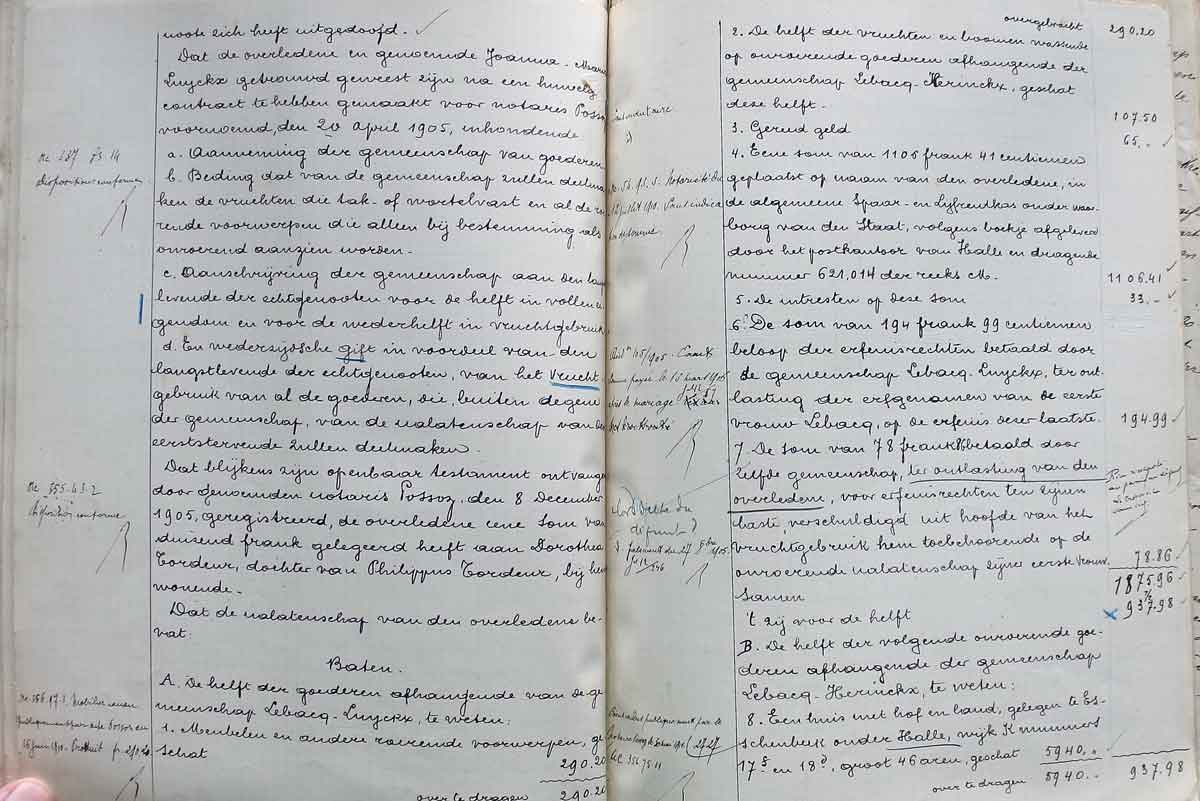 noote zich heeft uitgedoofd.
Dat de overledene en genoemde Joanna-Maria
Luyckx getrouwd geweest zijn na een huwelijks
contract te hebben gemaakt voor notaris Possoz
voornoemd, den 20 April 1905, inhoudende
a. Aanneming der gemeenschap van goederen
b. Beding dat van de gemeenschap zullen deelma-
ken de vruchten die tak- of wortelvast en al de roe-
rende voorwerpen die alleen bij bestemming als
onroerend aanzien worden.
c. Aanschrijving der gemeenschap aan den lang
levende der echtgenooten voor de helft in vollen ei-
gendom en voor de wederhelft in vruchtgebruik
d. En wederzijdsche gift in voordeel van den
langstlevende der echtgenooten, van het vrucht-
gebruik van al de goederen, die, buiten degene
der gemeenschap, van de nalatenschap van den
eerststervende zullen deelmaken.
Dat blijkens zijn openbaar testament ontvangen
door genoemden notaris Possoz, den 8 December
1905, geregistreerd, de overledene eene som van
duizend frank gelegeerd heeft aan Dorothea
Tordeur, dochter van Philippus Tordeur, bij hem
wonende.
Dat de nalatenschap van den overledene be-
vat:
Baten.
A. De helft der goederen afhangende van de ge-
meenschap Lebacq-Luyckx, te weten:
1. Meubelen en andere roerende voorwerpen, ge-
schat 290.20
over te dragen 290.20
overgebracht 290.20
2. De helft der vruchten en boomen wassende
op onroerende goederen afhangende der
gemeenschap Lebacq-Herinckx, geschat
deze helft. 107.50
3. Gereed geld 65..
4. Eene som van 1106 frank 41 centiemen
geplaatst op naam van den overledene, in
de algemeene Spaar- en Lijfrentkas onder waar-
borg van den Staat, volgens boekje afgeleverd
door het postkantoor van Halle en dragende
nummer 621,014 der reeks M. 1106.41
5. De intresten op deze som 33.-
6. De som van 194 frank 99 centiemen
beloop der erfenisrechten betaald door
de gemeenschap Lebacq-Luyckx, ter ont-
lasting der erfgenamen van de eerste
vrouw Lebacq, op de erfenis dezer laatste. 194.99
7. De som van 78 frank 86 betaald door
zelfde gemeenschap, ter ontlasting van den
overledene, voor erfenisrechten ten zijnen
laste, verschuldigd uit hoofde van het
vruchtgebruik hem toebehoorende op de
onroerende nalatenschap zijner eerste vrouw. 78.86
Samen 1875.96
't zij voor de helft 937.98
B. De helft der volgende onroerende goe-
deren afhangende der gemeenschap
Lebacq-Herinckx, te weten:
8. Een huis met hof en land, gelegen te Es-
schenbeek onder Halle, wijk K nummers
17 en 18, groot 46 aren, geschat 5940..
over te dragen 5940.. 937.98